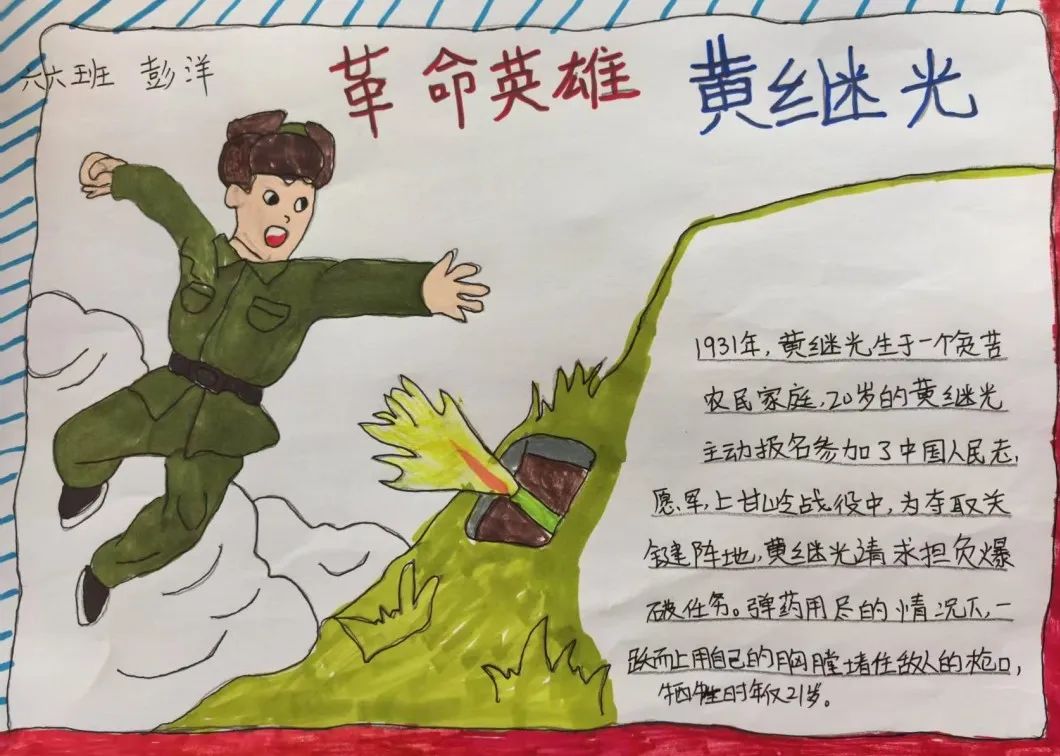 六六班 彭洋
革命英雄 黄继光
1931年,黄继光生于一个贫苦
农民家庭,20岁的黄继光
主动报名参加了中国人民志,
愿军,上甘岭战役中,为夺取关
键阵地,黄继光请求担负爆
破任务。弹药用尽的情况下,一
跃而上用自己的胸膛堵住敌人的枪口,
牺牲时年仅21岁。